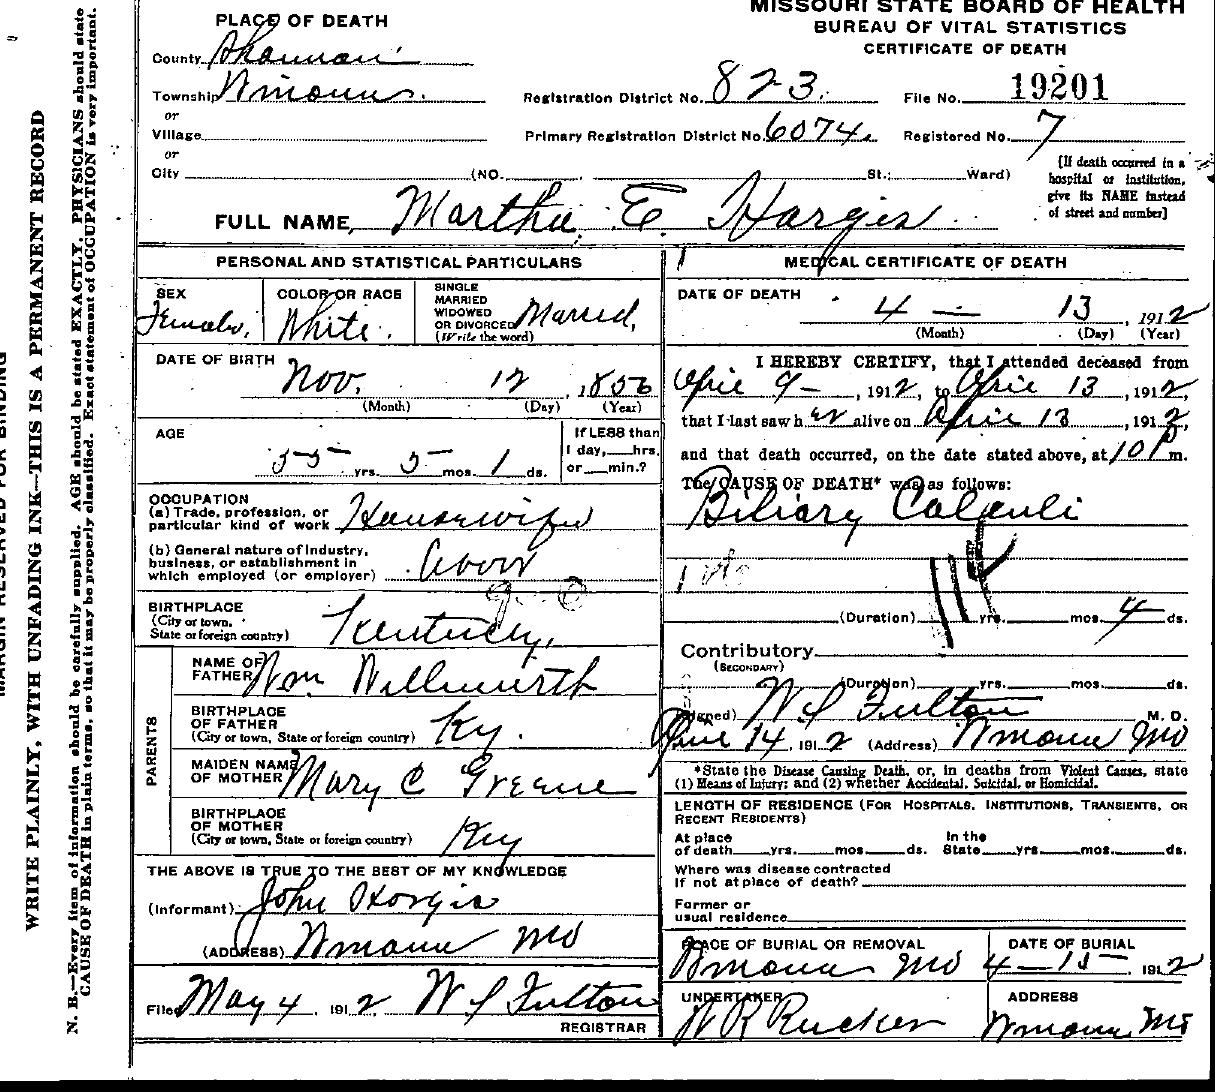 MISSOURI STATE BOARD OF HEALTH
BUREAU OF VITAL STATISTICS
CERTIFICATE OF DEATH
PLACE OF DEATH
County Shannon
Township
or
Village
or
City (NO. St.; Ward)
Registration District No. 823. File No. 19201
Primary Registration District No. 6074. Registered No. 7
[If death occurred in a
hospital or institution,
give its NAME instead
of street and number]
FULL NAME, Martha E. Hargis
PERSONAL AND STATISTICAL PARTICULARS
SEX
Female,
COLOR OR RACE
White.
SINGLE
MARRIED
WIDOWED
OR DIVORCED
(Write the word)
Married,
DATE OF BIRTH
Nov. 12, 1856
(Month) (Day) (Year)
AGE
55 yrs. 5 mos. 1 ds.
If LESS than
1 day, hrs.
or min.?
OCCUPATION
(a) Trade, profession, or
particular kind of work Housewife
(b) General nature of Industry,
business, or establishment in
which employed (or employer) Above
BIRTHPLACE
(City or town,
State or foreign country) Kentucky,
PARENTS
NAME OF
FATHER Wm
BIRTHPLACE
OF FATHER
(City or town, State or foreign country) Ky.
MAIDEN NAME
OF MOTHER Mary C Greene
BIRTHPLACE
OF MOTHER
(City or town, State or foreign country) Ky
THE ABOVE IS TRUE TO THE BEST OF MY KNOWLEDGE
(Informant) John Hargis
(ADDRESS) Mo
Filed May 4, 1912 W S Fulton
REGISTRAR
MEDICAL CERTIFICATE OF DEATH
DATE OF DEATH
4 — 13, 1912
(Month) (Day) (Year)
I HEREBY CERTIFY, that I attended deceased from
April 9 –, 1912, to April 13, 1912,
that I last saw her alive on April 13, 1912,
and that death occurred, on the date stated above, at 10 P m.
The CAUSE OF DEATH* was as follows:
Biliary Calculi
(Duration) yrs. mos. 4 ds.
Contributory
(SECONDARY)
(Duration) yrs. mos. ds.
(Signed) W S Fulton M. D.
14, 1912 (Address) Mo
*State the Disease Causing Death, or, in deaths from Violent Causes, state
(1) Means of Injury; and (2) whether Accidental, Suicidal, or Homicidal.
LENGTH OF RESIDENCE (FOR HOSPITALS, INSTITUTIONS, TRANSIENTS, OR
RECENT RESIDENTS)
At place
of death yrs. mos. ds.
In the
State yrs. mos. ds.
Where was disease contracted
If not at place of death?
Former or
usual residence
PLACE OF BURIAL OR REMOVAL
Mo
DATE OF BURIAL
4 — 15 —, 1912
UNDERTAKER
Rucker
ADDRESS
Mo
MARGIN RESERVED FOR BINDING
WRITE PLAINLY, WITH UNFADING INK—THIS IS A PERMANENT RECORD
N. B.—Every item of information should be carefully supplied. AGE should be stated EXACTLY. PHYSICIANS should state
CAUSE OF DEATH in plain terms, so that it may be properly classified. Exact statement of OCCUPATION is very important.